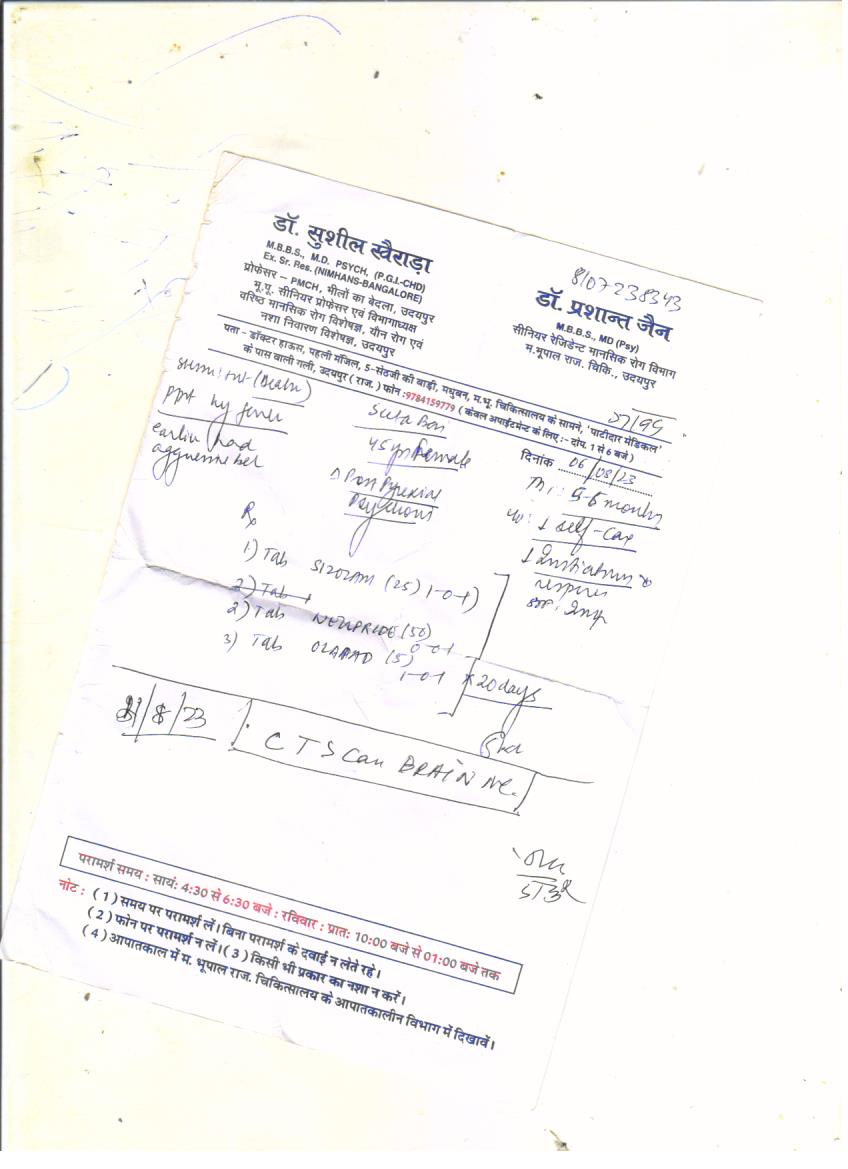 8107238343
डॉ. सुशील खैराड़ा
M.B.B.S., M.D. PSYCH, (P.G.I.-CHD)
Ex. Sr. Res. (NIMHANS-BANGALORE)
प्रोफेसर – PMCH, भीलों का बेदला, उदयपुर
भू.पू. सीनियर प्रोफेसर एवं विभागाध्यक्ष
वरिष्ठ मानसिक रोग विशेषज्ञ, यौन रोग एवं
नशा निवारण विशेषज्ञ, उदयपुर
डॉ. प्रशान्त जैन
M.B.B.S., MD (Psy)
सीनियर रेजिडेन्ट मानसिक रोग विभाग
म.भूपाल राज. चिकि., उदयपुर
पता – डॉक्टर हाऊस, पहली मंजिल, 5-सेठजी की बाड़ी, मधुबन, म.भू. चिकित्सालय के सामने, 'पाटीदार मेडिकल'
के पास वाली गली, उदयपुर ( राज. ) फोन :9784159779 ( केवल अपाईंटमेन्ट के लिए :- दोप. 1 से 6 बजे )
दिनांक 06/08/23
ppt by fever
earlier had
45 yr Female
Δ Post Pyrexial
Psychosis
5-6 months
↓ self-care
Rx
1) Tab SIZOZAM (25) 1-0-1
2) Tab
2) Tab NEXIPRIDE (50)
0-0-1
3) Tab OLAPAD (5)
1-0-1
x 20 days
/8/23
CT Scan BRAIN
परामर्श समय : सायं: 4:30 से 6:30 बजे : रविवार : प्रात: 10:00 बजे से 01:00 बजे तक
नोट : ( 1 ) समय पर परामर्श लें। बिना परामर्श के दवाई न लेते रहे।
( 2 ) फोन पर परामर्श न लें। ( 3 ) किसी भी प्रकार का नशा न करें।
( 4 ) आपातकाल में म. भूपाल राज. चिकित्सालय के आपातकालीन विभाग में दिखावें।